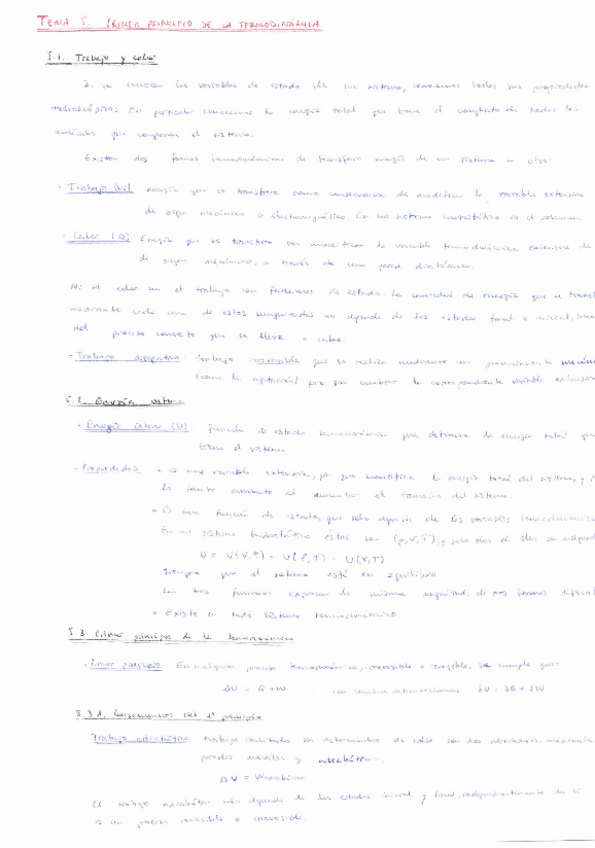 TEMA 5. PRIMER PRINCIPIO DE LA TERMODINÁMICA
5.1. Trabajo y calor
Si se conocen las variables de estado de un sistema, conocemos todas sus propiedades
macroscópicas. En particular conocemos la energía total que tiene el conjunto de todas las
moléculas que componen el sistema.
Existen dos formas termodinámicas de transferir energía de un sistema a otro:
- Trabajo (W): energía que se transfiere como consecuencia de modificar la variable extensiva
de origen mecánico o electromagnético. En un sistema hidrostático es el volumen
- Calor (Q): Energía que se transfiere sin modificar la variable termodinámica extensiva de
de origen mecánico, a través de una pared diatérmica.
Ni el calor ni el trabajo son funciones de estado. La cantidad de energía que se
mediante cada una de estas magnitudes no depende de los estados final e inicial,
del proceso concreto que se lleve a cabo.
- Trabajo disipativo: trabajo irreversible que se realiza mediante un procedimiento
(como la agitación) pero sin cambiar la correspondiente variable extensiva
5.2. Energía interna
- Energía interna (U): función de estado termodinámica que determina la energía total que
tiene el sistema.
- Propiedades: • Es una variable extensiva, ya que cuantifica la energía total del sistema, y
la misma aumenta al aumentar el tamaño del sistema.
• Es una función de estado, que solo depende de las variables termodinámicas
En un sistema hidrostático éstas son (p,V,T), y solo dos de ellas son
U = U(V,T) = U(p,T) = U(p,V)
Siempre que el sistema esté en equilibrio.
Las tres funciones expresan la misma magnitud, de tres formas
• Existe en todo sistema termodinámico.
5.3 Primer principio de la termodinámica
- Primer principio: En cualquier proceso termodinámico, irreversible o reversible, se cumple que:
ΔU = Q + W
5.3.1. Consecuencias del 1º principio
Trabajo adiabático: trabajo realizado sin intercambio de calor con los alrededores, mediante
paredes móviles y adiabáticas.
ΔU = W adiabático
El trabajo adiabático solo depende de los estados inicial y final, independientemente de si
es un proceso reversible o irreversible.